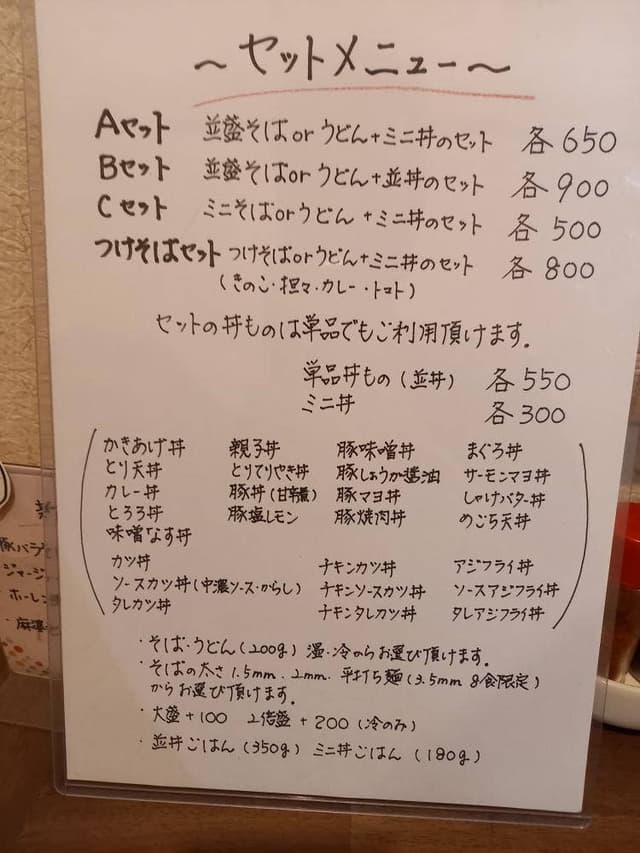 ～セットメニュー～
Aセット 並盛そばorうどん+ミニ丼のセット 各650
Bセット 並盛そばorうどん+並丼のセット 各900
Cセット ミニそばorうどん+ミニ丼のセット 各500
つけそばセット つけそばorうどん+ミニ丼のセット 各800
(きのこ・担々・カレー・トマト)
セットの丼ものは単品でもご利用頂けます。
単品丼もの(並丼) 各550
ミニ丼 各300
かきあげ丼 親子丼 豚味噌丼 まぐろ丼
とり天丼 とりてりやき丼 豚しょうが醤油 サーモンマヨ丼
カレー丼 豚丼(甘辛煮) 豚マヨ丼 しゃけバター丼
とろろ丼 豚塩レモン 豚焼肉丼 めごち天丼
味噌なす丼
カツ丼 チキンカツ丼 アジフライ丼
ソースカツ丼(中濃ソース・からし) チキンソースカツ丼 ソースアジフライ丼
タレカツ丼 チキンタレカツ丼 タレアジフライ丼
・そば・うどん(200g)温・冷からお選び頂けます。
・そばの太さ1.5mm、2mm、平打ち麺(3.5mm 8食限定)
からお選び頂けます。
・大盛+100 2倍盛+200(冷のみ)
・並丼ごはん(350g) ミニ丼ごはん(180g)
豚バラ
ジャージ
ホーレン
麻婆